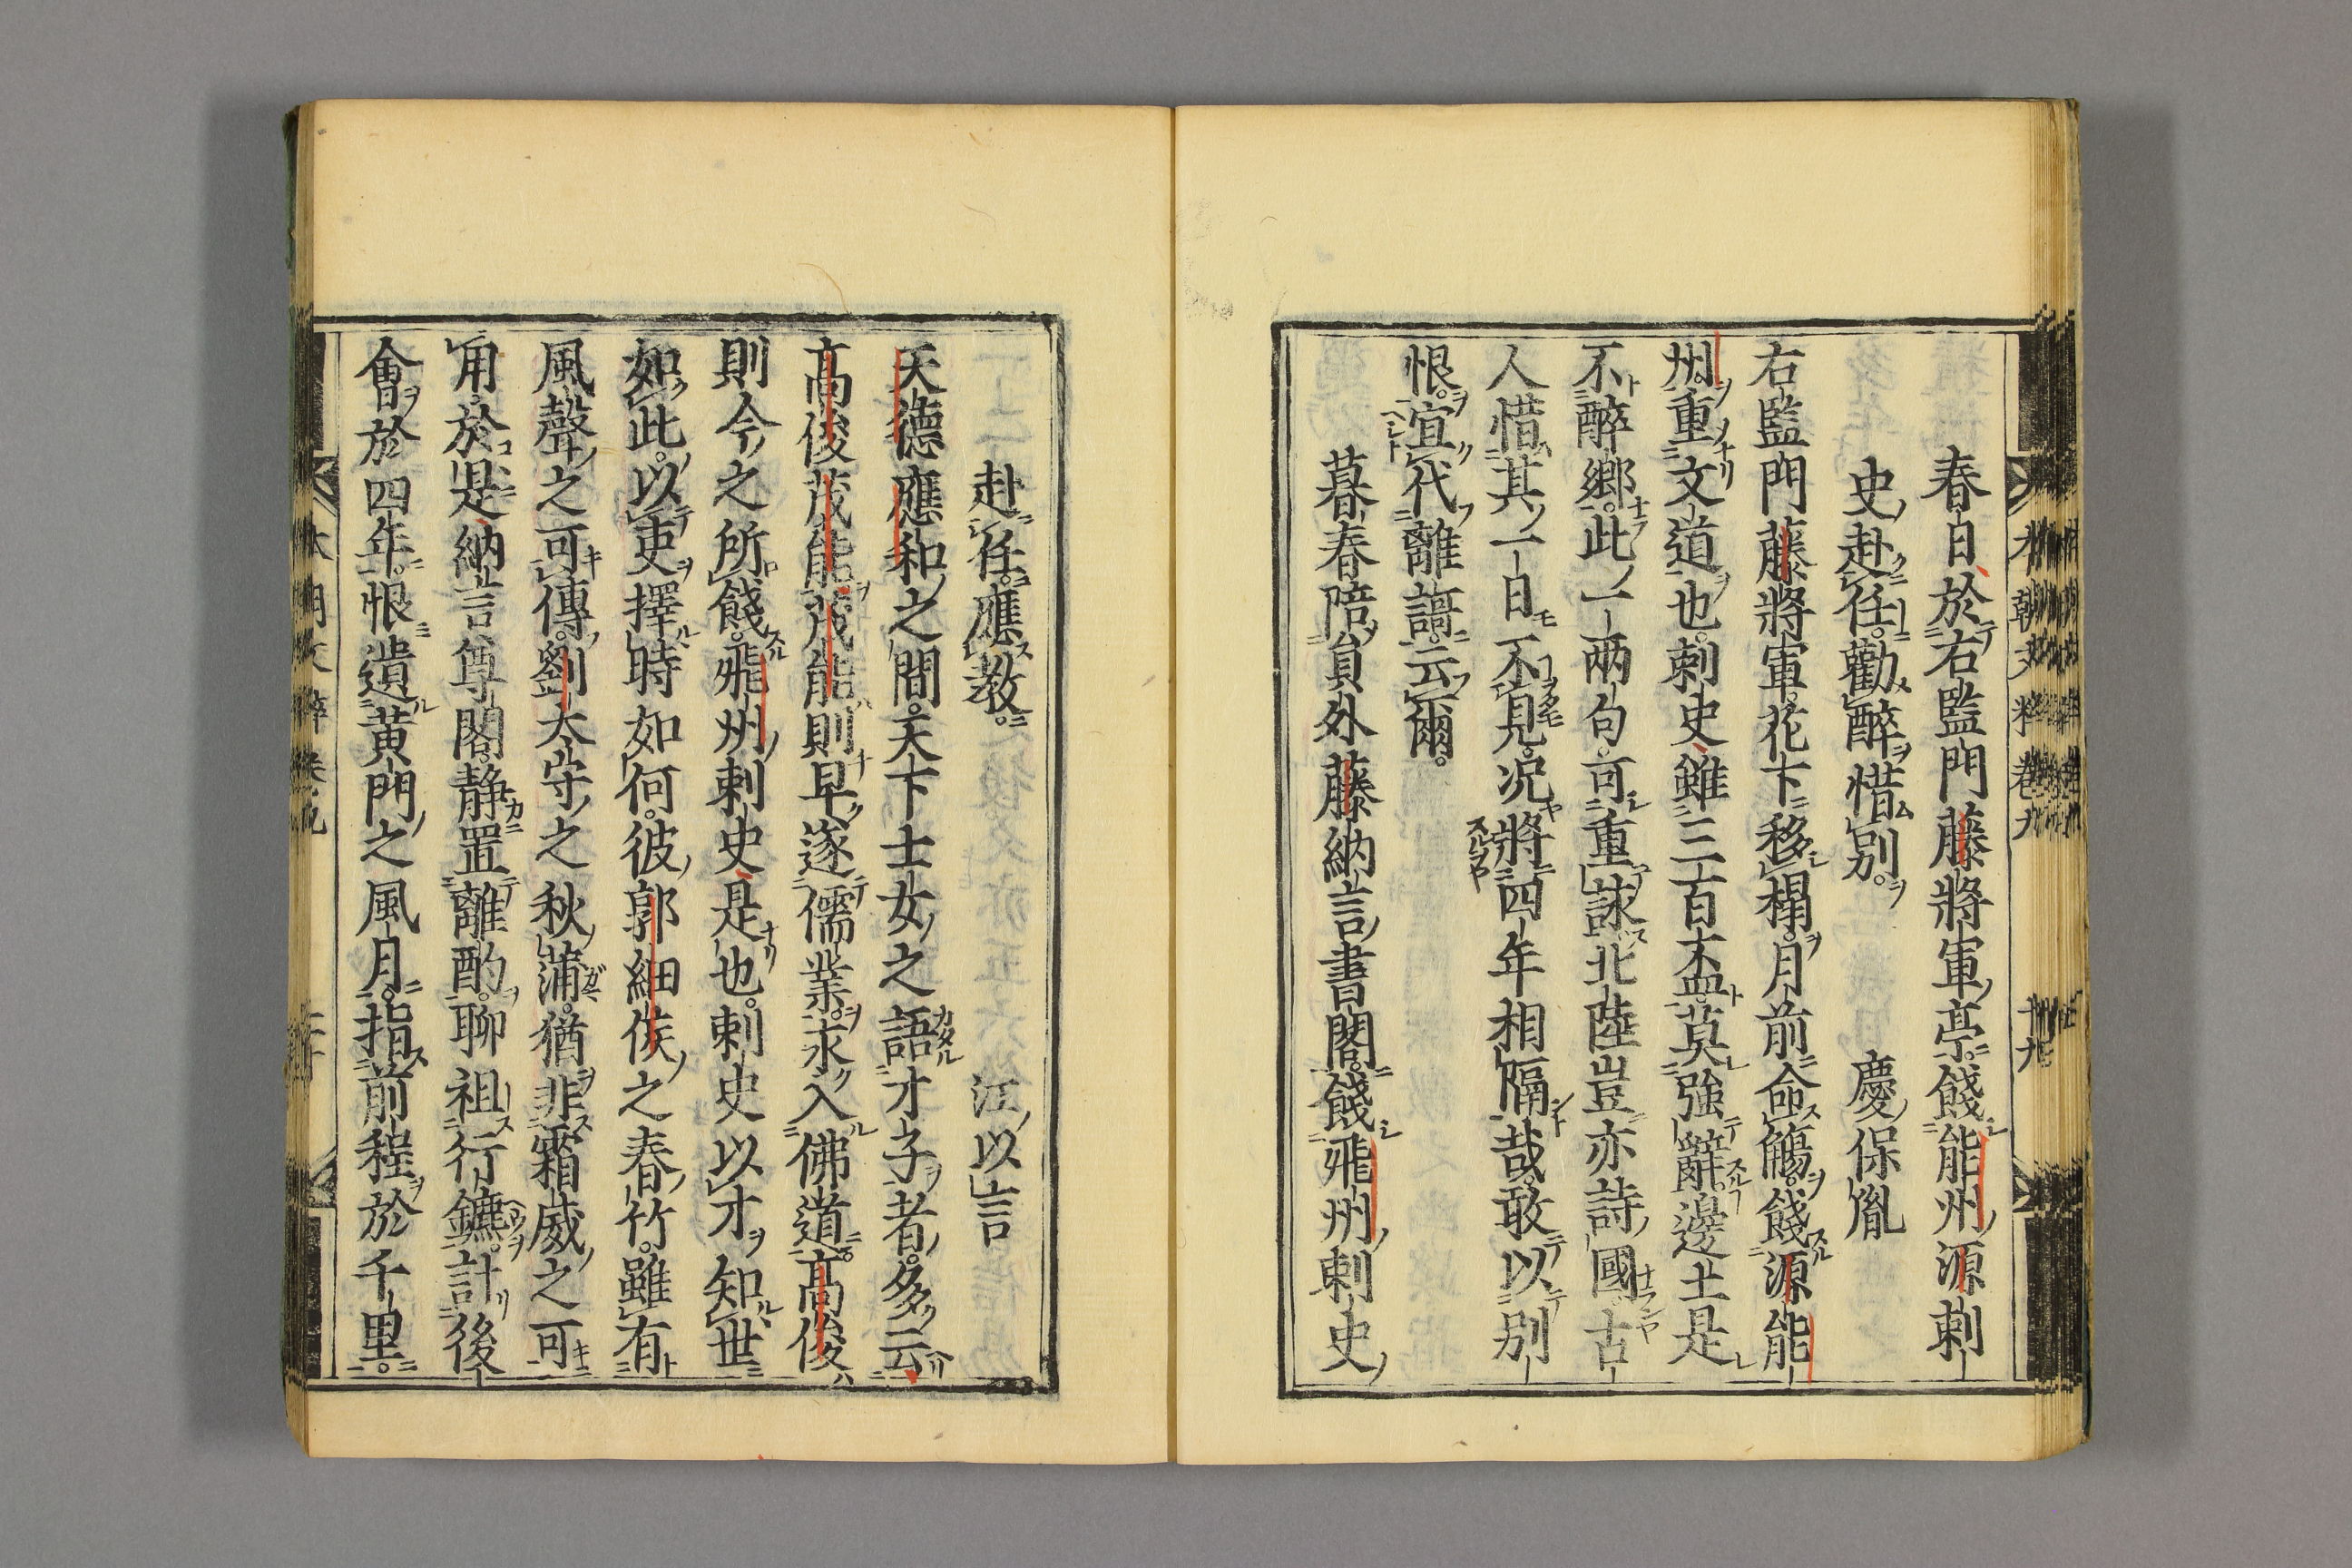 春日於右監門藤將軍亭餞能州源刺
史赴任勸醉惜別。 慶保胤
右監門藤將軍。花下移榻。月前命觴。餞源能
州。重文道也。刺史雖三百盃。莫強辭。邊土是
不醉鄉。此一兩句。可重詠。北陸豈亦詩國。古
人惜其一日不見。况將四年相隔哉。敢以別
恨。宜代離謌。云爾。
暮春陪員外藤納言書閣。餞飛州刺史
赴任。應教。 江以言
天德應和之間。天下士女之語才子者。多云
高俊茂能。茂能則早遂儒業。永入佛道。高俊
則今之所餞。飛州刺史是也。刺史以才知世
如此。以吏擇時如何。彼郭細侯之春竹。雖有
風聲之可傳。劉太守之秋蒲。猶非霜威之可
用。於是納言尊閣。靜置離酌。聊祖行鑣。計後
會於四年。恨遺黃門之風月。指前程於千里。
本朝文粹卷九 十九